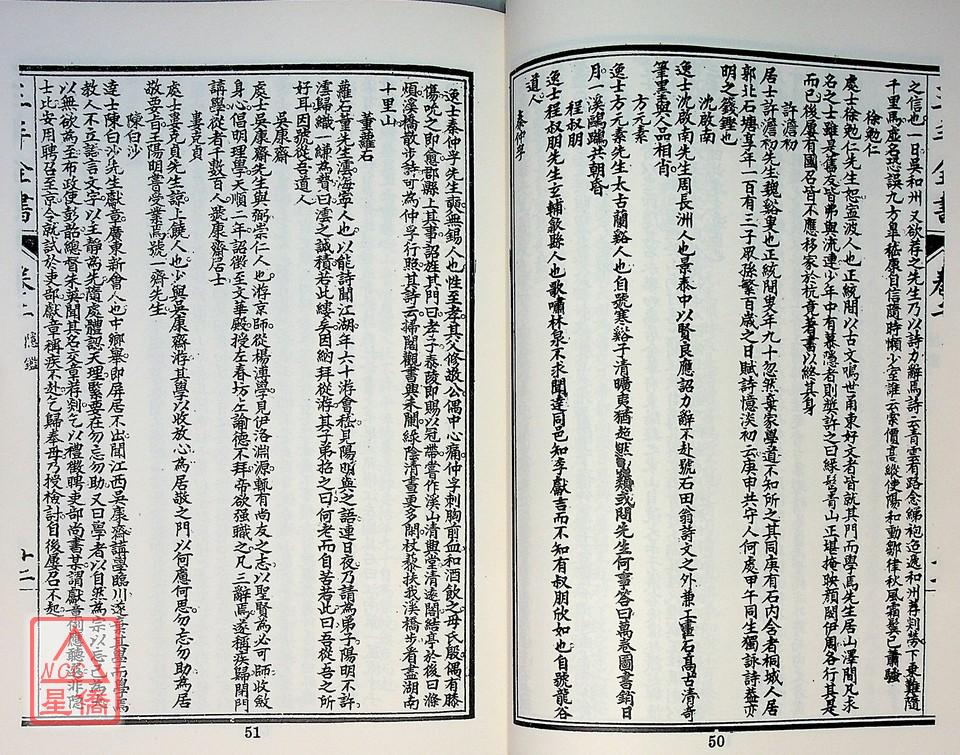 之信也一日吳和州又欲荐之先生乃以詩力辭焉詩云青雲有路念綈袍迢遞和州荐剡勞下乘難隨
千里馬虛名恐誤九方皐嵇康自信踈時懶少室誰云索價高縱使陽和動鄒律秋風霜鬢已蕭騷
徐勉仁
處士徐勉仁先生恕寧波人也正統間以古文鳴世甬東好文者皆就其門而學焉先生居山澤間凡求
名之士雖是舊友皆弗與流連少年中有慕隱者則獎許之曰綠髮青山正堪掩映顏闕伊周各行其是
而已後屢有國召皆不應移家於杭竟著書以終其身
許澹初
居士許澹初先生魏谿叟也正統間叟年九十忽然棄家學道不知所之其同庚有石内含者桐城人居
郭北石塘享年一百有三子眾孫繁百歲之日賦詩憶淡初云庚申共守人何處甲午同生獨詠詩
明之錢鏗也
沈啟南
逸士沈啟南先生周長洲人也景泰中以賢良應詔力辭不赴號石田翁詩文之外兼工畫石高古清奇
筆墨與人品相肖
方元素
逸士方元素先生太古蘭谿人也自號寒谿子清曠夷猶超然或問先生何事答曰萬卷圖書銷日
月一溪鷗鷺共朝昏
程叔朋
逸士程叔朋先生玄輔歙縣人也歌嘯林泉不求聞達同邑知李獻吉而不知有叔朋欣如也自號龍谷
道人
秦仲孚
50
逸士秦仲孚先生奭無錫人也性至孝其父修敬公偶中心痛仲孚刺胸前血和酒飲之母氏殷偶有膝
傷吮之即愈郡縣上其事詔旌其門曰孝子泰陵即賜以冠帶嘗作溪山清興堂清遠閣結亭於後曰滌
煩溪橋散步許可為仲孚行照其詩云掃閣觀書興未闌綠陰清晝更多閒杖藜扶我溪橋步看盡湖南
十里山
董蘿石
蘿石董先生澐海寧人也以能詩聞江湖年六十游會稽見陽明與之語連日夜乃請為弟子陽明不許
澐歸織一縑為贄曰澐之誠積若此縷矣因納拜從游其子弟招之曰何老而自苦若此曰吾從吾之所
好耳因號從吾道人
吳康齋
處士吳康齋先生與弼崇仁人也游京師從楊溥學見伊洛淵源輒有尚友之志以聖賢為必可師收斂
身心倡明理學天順二年詔徵至文華殿授左春坊左諭德不拜帝欲強職之凡三辭焉遂稱疾歸閉門
講學從者千數百人裘康齋居士
婁克貞
處士婁克貞先生諒上饒人也少與吳康齋游其學以收放心為居敬之門以何應何思勿忘勿助為居
敬要旨王陽明嘗受業焉號一齋先生
陳白沙
逹士陳白沙先生獻章廣東新會人也中鄉舉即屏居不出聞江西吳康齋講學臨川遂其學而學焉
教人不立話言文字以主靜為先隨處體認天理緊要在勿忘勿助又曰學者以自然為宗以忘己為大
以無欲為至布政使彭韶總督朱英聞其名交章荐剡乞以禮徵聘吏部尚書某謂獻章例應聽選非隱
士比安用聘召至京令就試於吏部獻章稱疾不赴乞歸奉母乃授檢討自後屢召不起
隱鑑
十二
51
NCC
星僑